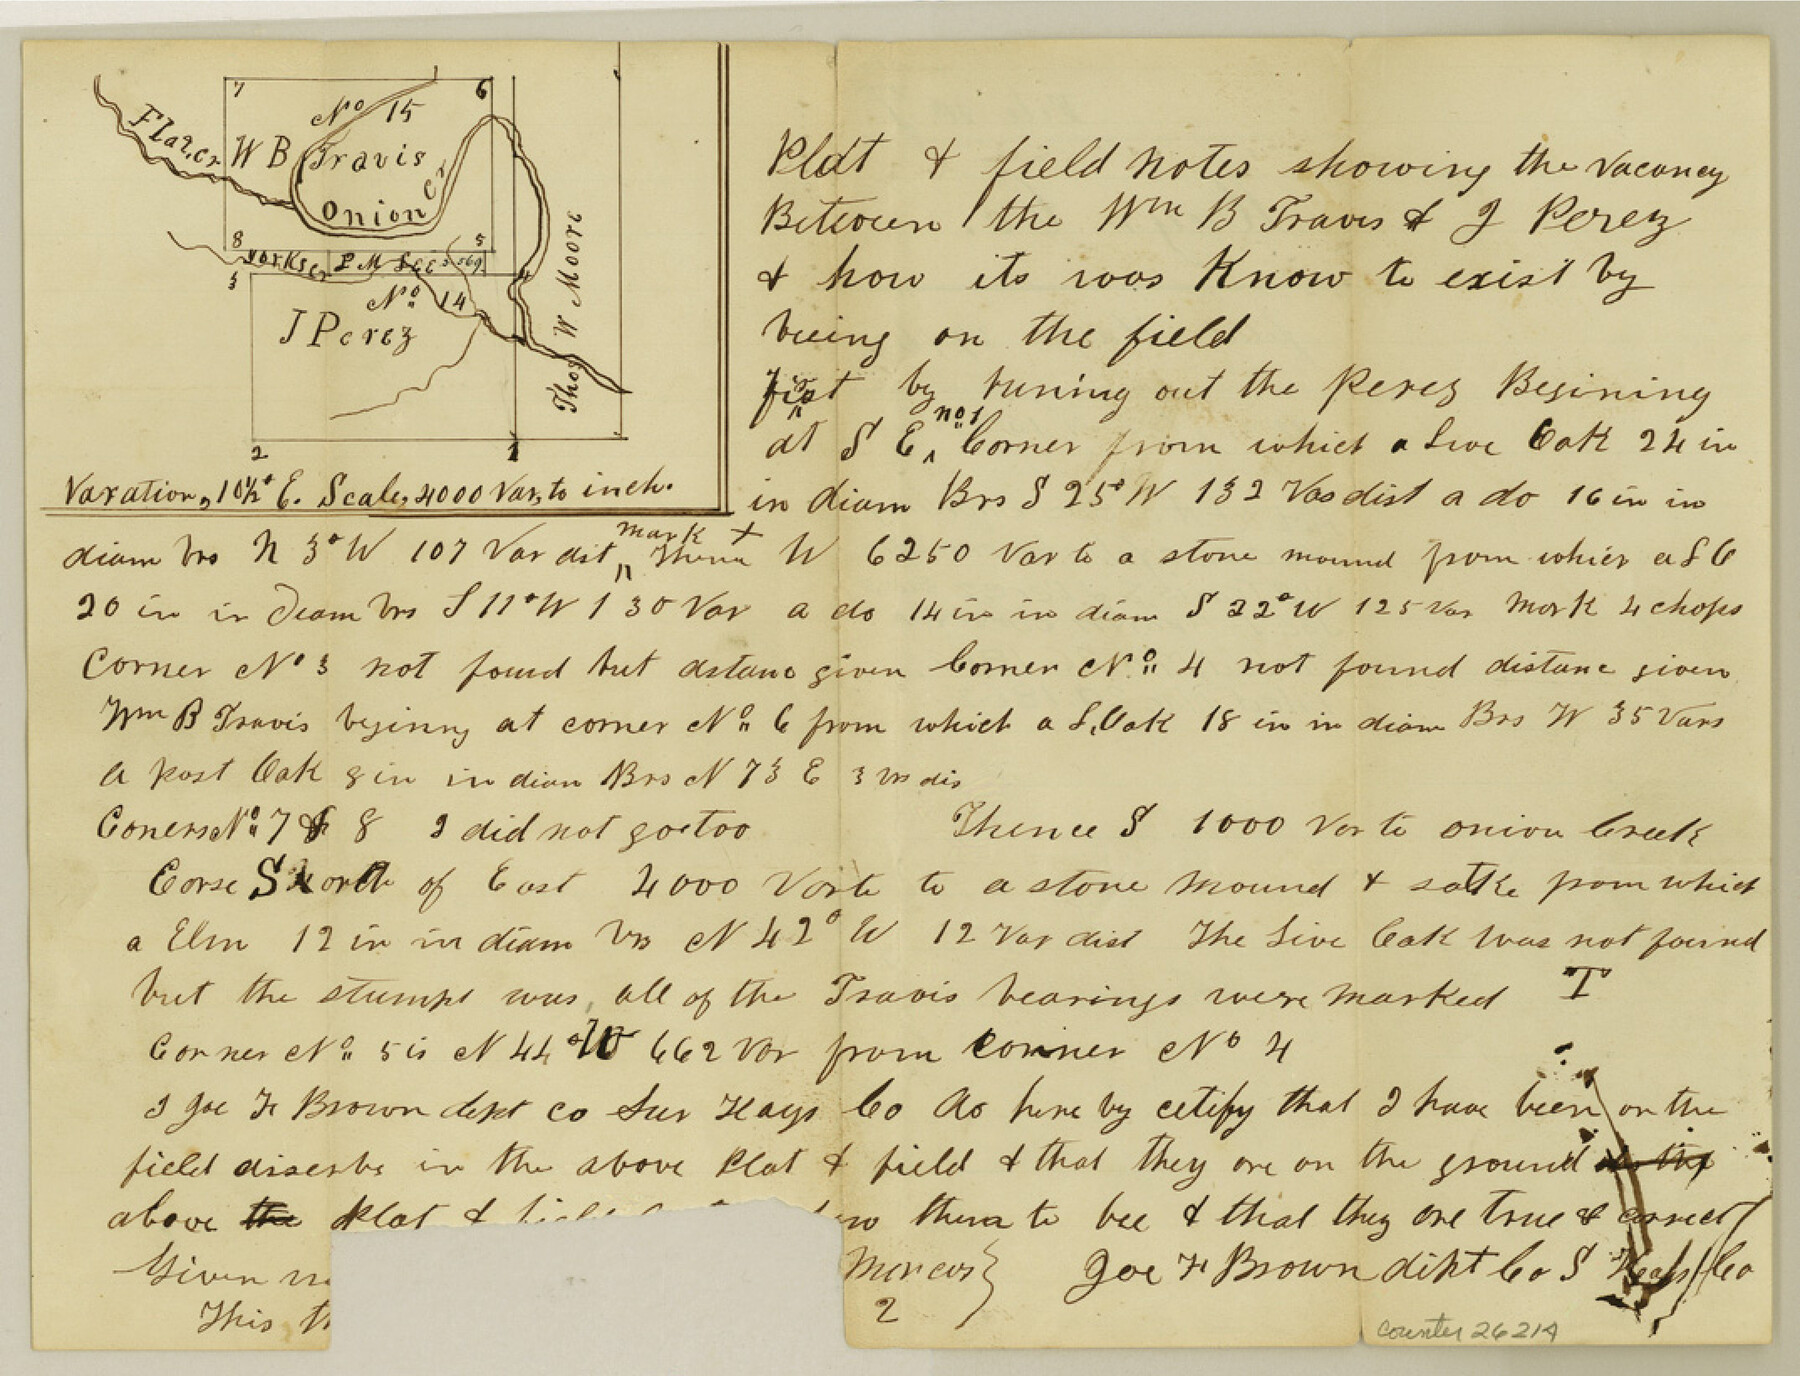 7
6
No 15
Flat, cr
W B Travis
Onion Cr
8
5
Yorks cr
P M Lee
569
3
4
No 14
J Perez
Thos W Moore
2
1
Varation, 10½° E. Scale, 4000 Var, to inch.
Platt & field notes showing the vacancy
Between the Wm B Travis & J Perez
& how its was Know to exist by
being on the field
first by runing out the Perez Begining
at S E, no 1 Corner from which a Live Oak 24 in
in diam Brs S 25° W 132 Vas dist a do 16 in in
diam brs N 3° W 107 Var dist, mark + Thence W 6250 Var to a stone mound from which a L O
20 in in Diam brs S 11° W 130 Var a do 14 in in diam S 22° W 125 var Mark 4 chops
Corner No 3 not found but dstanc given Corner No 4 not found distanc given
Wm B Travis begining at corner No 6 from which a L, Oak 18 in in diam Brs W 35 Vars
A post Oak 8 in in diam Brs N 73 E 3 vrs dis
Coners No 7 & 8 I did not goe too Thence S 1000 Var to onion Creek
Corse South of East 4000 Var to to a stone Mound & satke from which
a Elm 12 in in diam brs N 42° W 12 Var dist The Live Oak was not found
but the stumpt was, all of the Travis bearings were marked T
Corner No 5 is N 44° W 662 Var from corner No 4
I Joe F Brown dept co Sur Hays Co do here by cetify that I have been on the
field discrbe in the above Plat & field & that they are on the ground
above the Plat & them to bee & that they are true & correct
Given
Marcos } Joe F Brown dipt Co S Hays Co
This
2
Counter 26214